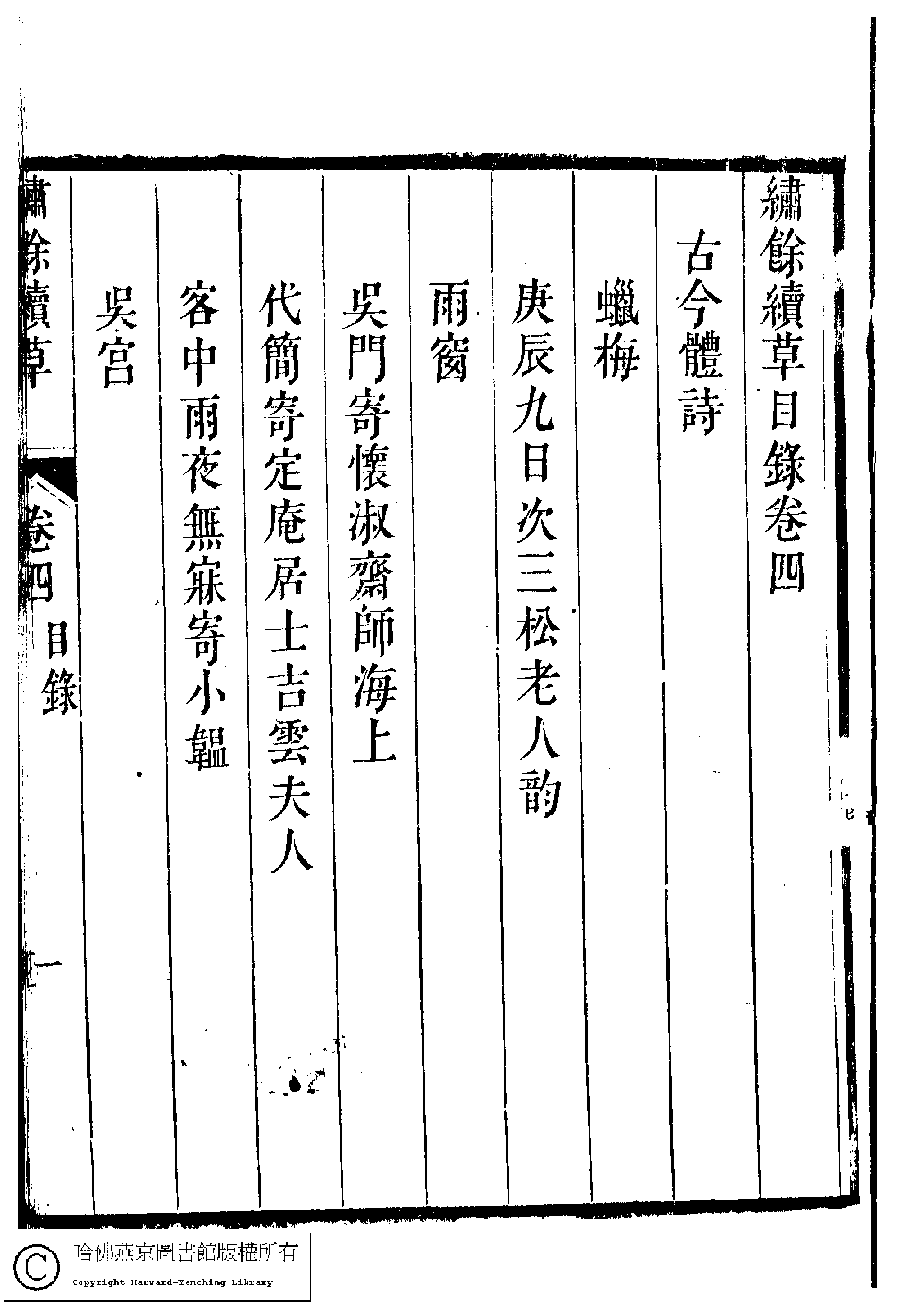 繡餘續草目錄卷四
古今體詩
蠟梅
庚辰九日次三松老人韵
雨窗
吳門寄懷淑齋師海上
代簡寄定庵居士吉雲夫人
客中雨夜無寐寄小韞
吳宮
繡餘續草
卷四
目錄
一
哈佛燕京圖書館版權所有
Copyright Harvard-Yenching Library